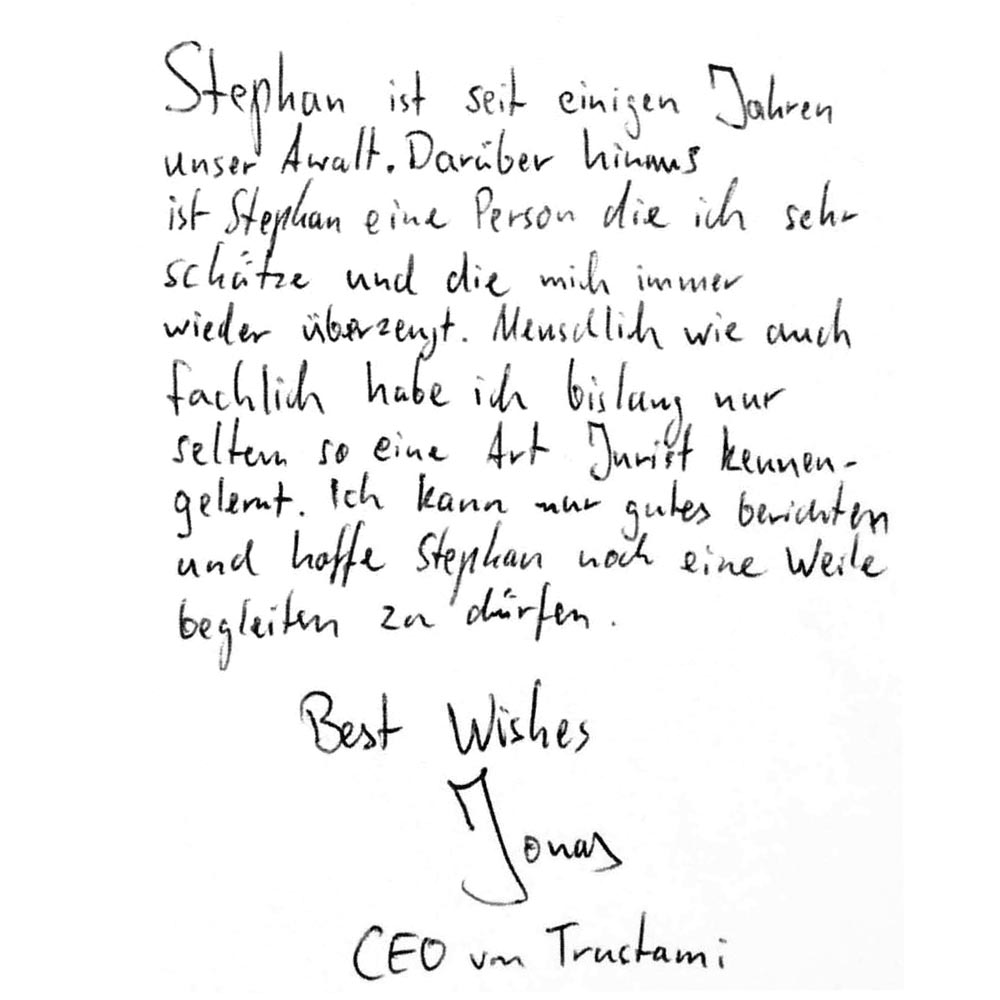 Stephan ist seit einigen Jahren
unser Awalt. Darüber hinaus
ist Stephan eine Person die ich sehr
schätze und die mich immer
wieder überzeugt. Menschlich wie auch
fachlich habe ich bislang nur
selten so eine Art Jurist kennen-
gelernt. Ich kann nur gutes berichten
und hoffe Stephan noch eine Weile
begleiten zu dürfen.
Best Wishes
Jonas
CEO von Trustami